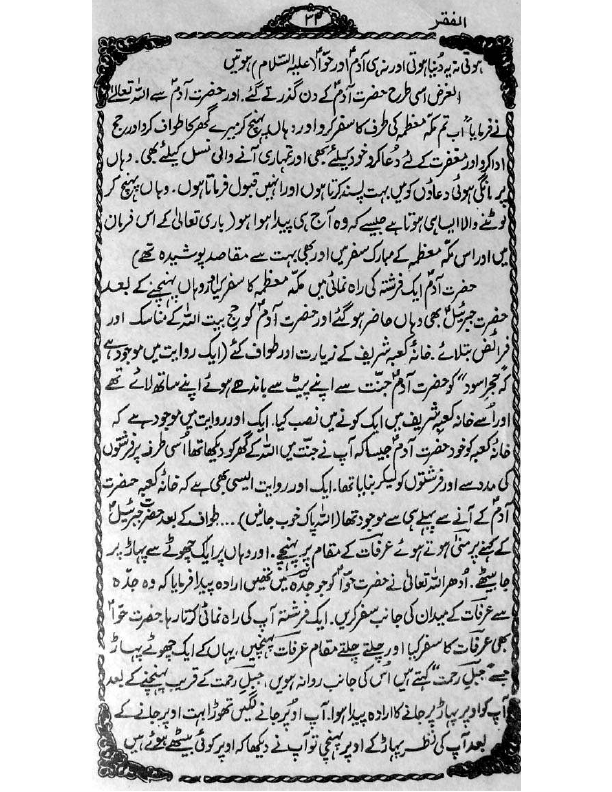 الفقر
۲۴
ہوتی نہ یہ دُنیا ہوتی اور نہ ہی آدمؑ اور حوّاؑ (علیہ السّلام) ہوتیں
الغرض اسی طرح حضرت آدمؑ کے دن گذرتے گئے۔ اور حضرت آدمؑ سے اللہ تعالےٰ
نے فرمایا "اب تم مکّہ معظمہ کی طرف کا سفر کرو اور وہاں پہنچ کر میرے گھر کا طواف کرو اور حج
ادا کرو اور مغفرت کے لئے دُعا کرو خود کیلئے بھی اور تمہاری آنے والی نسل کیلئے بھی۔ وہاں
پر مانگی ہوئی دعاؤں کو میں بہت پسند کرتا ہوں اور انہیں قبول فرماتا ہوں۔ وہاں پہنچ کر
لوٹنے والا ایسا ہی ہوتا ہے جیسے کہ وہ آج ہی پیدا ہوا ہو (باری تعالیٰ کے اس فرمان
میں اور اس مکّہ معظمہ کے مبارک سفر میں اور بھی بہت سے مقاصد پوشیدہ تھے)
حضرت آدمؑ ایک فرشتہ کی راہ نمائی میں مکّہ معظمہ کا سفر کیا اور وہاں پہنچنے کے بعد
حضرت جبرئیلؑ بھی وہاں حاضر ہو گئے اور حضرت آدمؑ کو حج بیت اللہ کے مناسک اور
فرائض بتلائے۔ خانۂ کعبہ شریف کے زیارت اور طواف کئے (ایک روایت میں موجود ہے
کہ حجرِ اسود" کو حضرت آدمؑ جنّت سے اپنے پیٹ سے باندھے ہوئے اپنے ساتھ لائے تھے
اور اُسے خانہ کعبہ شریف میں ایک کونے میں نصب کیا۔ ایک اور روایت میں موجود ہے کہ
خانۂ کعبہ کو خود حضرت آدمؑ جیسا کہ آپ نے جنّت میں اللہ کے گھر کو دیکھا تھا اُسی طرف پر فرشتوں
کی مدد سے اور فرشتوں کو لیکر بنایا تھا۔ ایک اور روایت ایسی بھی ہے کہ خانۂ کعبہ حضرت
آدمؑ کے آنے سے پہلے ہی سے موجود تھا (اللہ پاک خوب جانیں)... طواف کے بعد حضرت جبرئیلؑ
کے کہنے پر منیٰ ہوتے ہوئے عرفات کے مقام پر پہنچے۔ اور وہاں پر ایک چھوٹے سے پہاڑ پر
جا بیٹھے۔ اُدھر اللہ تعالیٰ نے حضرت حوّاؑ کو جو جدّہ میں تھیں ارادہ پیدا فرمایا کہ وہ جدّہ
سے عرفات کے میدان کی جانب سفر کریں۔ ایک فرشتہ آپ کی راہ نمائی کرتا رہا۔ حضرت حوّاؑ
بھی عرفات کا سفر کیا اور چلتے چلتے مقام عرفات پہنچیں۔ یہاں کے ایک چھوٹے پہاڑ
جسے "جبلِ رحمت" کہتے ہیں اُس کی جانب روانہ ہویں۔ جبلِ رحمت کے قریب پہنچنے کے بعد
آپ کو اوپر پہاڑ پر جانے کا ارادہ پیدا ہوا۔ آپ اوپر جانے لگیں تھوڑا بہت اوپر جانے کے
بعد آپ کی نظر پہاڑ کے اوپر پہنچی تو آپ نے دیکھا کہ اوپر کوئی بیٹھے ہوئے ہیں